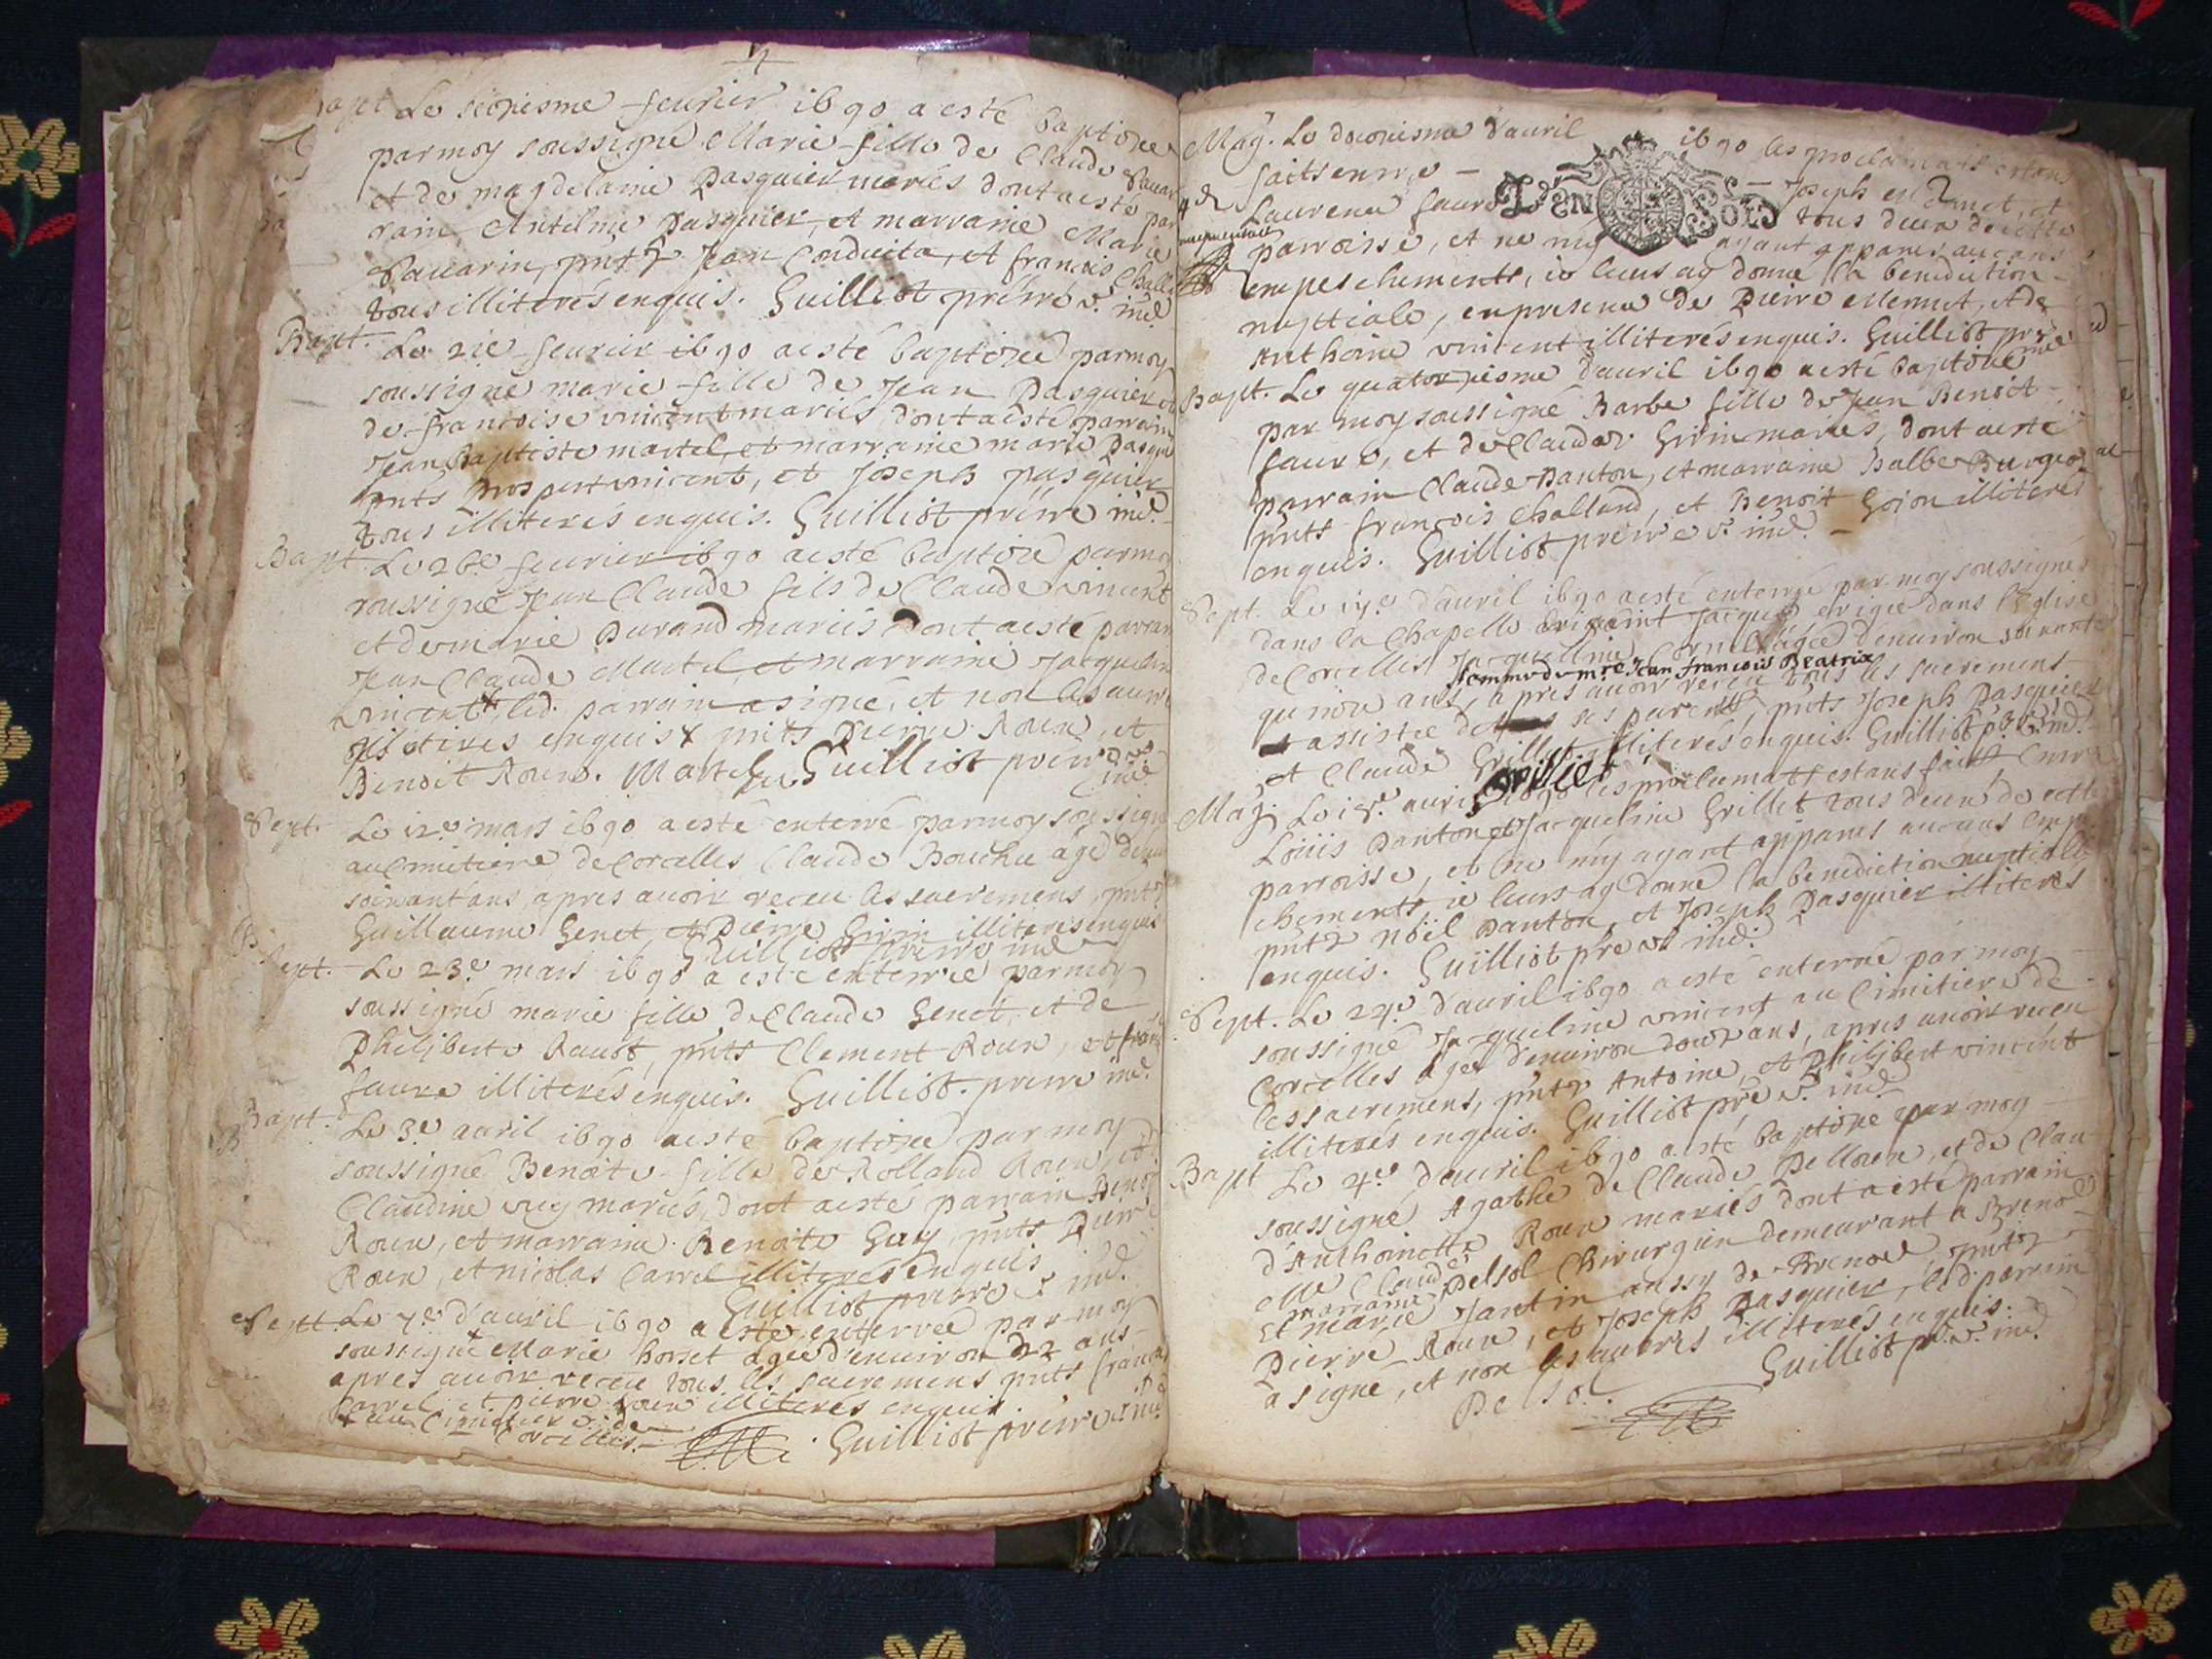 Bapt Le seiziesme feurier 1690 a esté baptizée
par moy soussigné Marie fille de Claude Sauar
et de magdelaine Pasquier mariés dont a esté par
rain Antelme Pasquier, et marraine Marie
Sauarin, pntz Jean Conduita, et francois Challa
tous illiterés enquis. Guilliot prëtre v. ind.
Bapt. Le 21e feurier 1690 a esté baptizée par moy
soussigné marie fille de Jean Pasquier et
de francoise vincent mariés, dont a esté parrain
Jean Baptiste martel, et marraine marie Pasqui
pnts Prospert vincent, et Joseph pasquier
tous illiterés enquis. Guilliot prëtre ind.
Bapt. Le 26e feurier 1690 a esté baptizé par moy
soussigné Jean Claude fils de Claude vincent
et de marie Durand mariés dont a esté parrain
Jean Claude Martel, et marraine Jacqueline
vincent, led. parrain a signé, et non les autres
illiterés enquis pnts Pierre Roux, et
Benoit Roux. Martel Guilliot prëtre v.
ind.
Sept. Le 12e mars 1690 a esté enterré par moy soussigné
au Cimitiere de Corcelles Claude Bouchu agé denui
soixant'ans, apres auoir receu les sacremens, pntz
Guillaume Genet, et Pierre Girin illiterés enquis
Guilliot prëtre ind.
Sept. Le 23e mars 1690 a esté enterrée par moy
soussigné marie fille de Claude Genet, et de
Philiberte Raust, pnts Clement Roux, et fran
faure illiterés enquis. Guilliot prëtre ind.
Bapt. Le 3e auril 1690 a esté baptizée par moy
soussigné Benoite fille de Rolland Roux, et
Claudine vuy mariés, dont a esté parrain Benoit
Roux, et marraine Renoite Guy, pnts Pierre
Roux, et nicolas Carrel illiterés enquis
Guilliot prëtre v. ind.
Sept. Le 7e d'auril 1690 a esté enterrée par moy
soussigné Marie borset agée d'enuiron 22 ans
apres auoir receu tous les sacremens pnts francois
Carrel, et pierre roux illiterés enquis.
au Cimitiere de
Corcelles. Guilliot prëtre v. ind.
Mag. Le douziesme d'auril 1690 les proclamats estans
faits entre Joseph et
Laurence faure tous deux de cette
parroisse, et ne m'y ayant apparus aucuns
empeschements, ie leurs ay donné la benediction
nuptiale, en presence de Pierre Mermet, et de
Anthoine vincent illiterés enquis. Guilliot prë
ind.
Bapt. Le quatorziesme d'auril 1690 a esté baptizée
par moy soussigné Barbe fille de Jean Benoit
faure, et de Claudaz Girin mariés, dont a esté
parrain Claude Danton, et marraine Balbe Burgeo
pnts francois Challand, et Benoit Gojon illiterés
enquis. Guilliot prëtre v. ind.
Sept. Le 17e d'auril 1690 a esté enterrée par moy soussigné
dans la Chapelle Saint Jacques erigée dans l'Eglise
de Corcelles Jacqueline Cornet agée d'enuiron soixante
femme de mre Jean francois Beatrix
quinze ans, apres auoir receu tous les sacremens
assistée de ses parents, pnts Joseph Pasquier
et Claude Grillet illiterés enquis. Guilliot pbr v. ind.
Grillet
Mag. Le 18e auril 1690 les proclamats estans faits entre
Loüis Danton et Jacqueline Grillet tous deux de cette
parroisse, et ne m'y ayant apparus aucuns empe
chements ie leurs ay donné la benediction nuptialle
pntz nöil Danton, et Joseph Pasquier illiterés
enquis. Guilliot prë v. ind.
Sept. Le 24e d'auril 1690 a esté enterrée par moy
soussigné Jacqueline vincent au Cimitiere de
Corcelles agée d'enuiron douz ans, apres auoir receu
les sacremens, pntz Antoine, et Philibert vincent
illiterés enquis. Guilliot prë v. ind.
Bapt Le 4e d'auril 1690 a esté baptizée par moy
soussigné Agathe de Claude Pelloux, et de Clau
d'Anthoinette Roux mariés dont a esté parrain
Me Claude Delsol Chirurgien demeurant a Brenod
Et marraine marie Jantin aussy de Brenod pntz
Pierre Roux, et Joseph Pasquier, led. parrain
a signé, et non les autres illiterés enquis.
Delsol. Guilliot pr. v. ind.